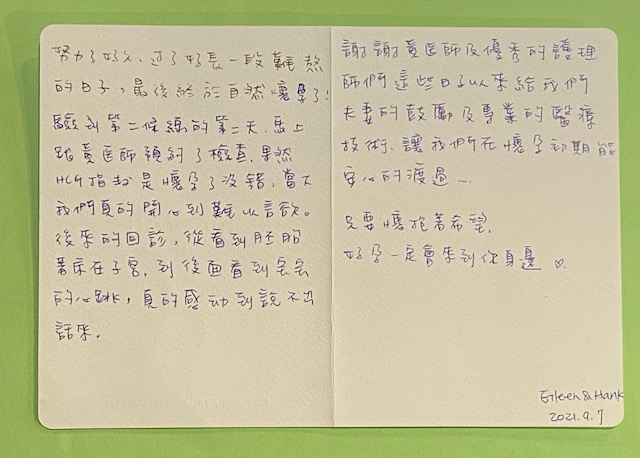 努力了好久、過了好長一段難熬
的日子，最後終於自然懷孕了!
驗到第二條線的第二天.馬上
跟黃醫師預約了檢查.果然
HCG指數是懷孕了沒錯，當下
我們真的開心到難以言欲。
後來的回診，從看到胚胎
著床在子宮，到後面看到寶寶
的心跳，真的感动到說不出
話來.
謝謝黃医師及優秀的護理
師們這些日子以來給我們
夫妻的鼓勵及專業的醫療
技術、讓我們在懷孕初期能
安心的渡過...
只要懷抱著希望,
好孕一定會來到你身邊 ♡.
Eileen & Hank
2021.9.7